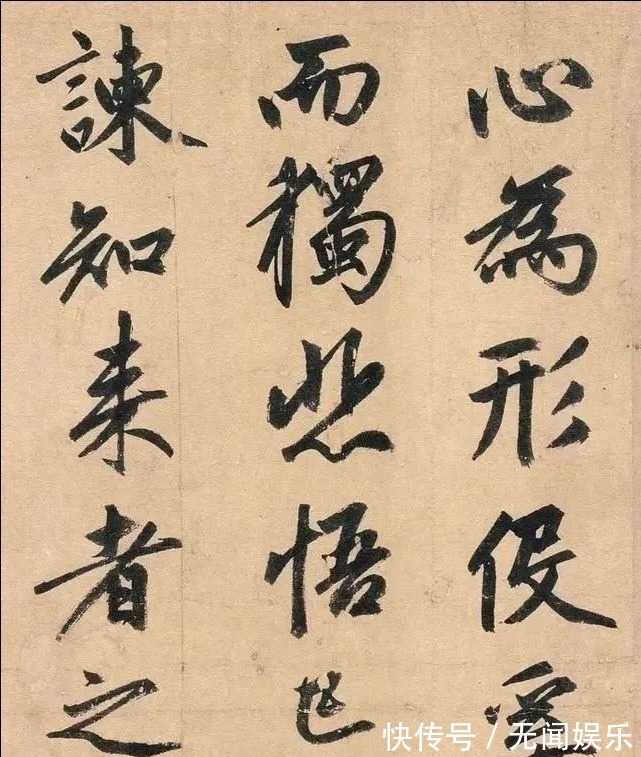 心為形役
而獨悲悟已
諫知来者之
快传号 / 无闻娱乐